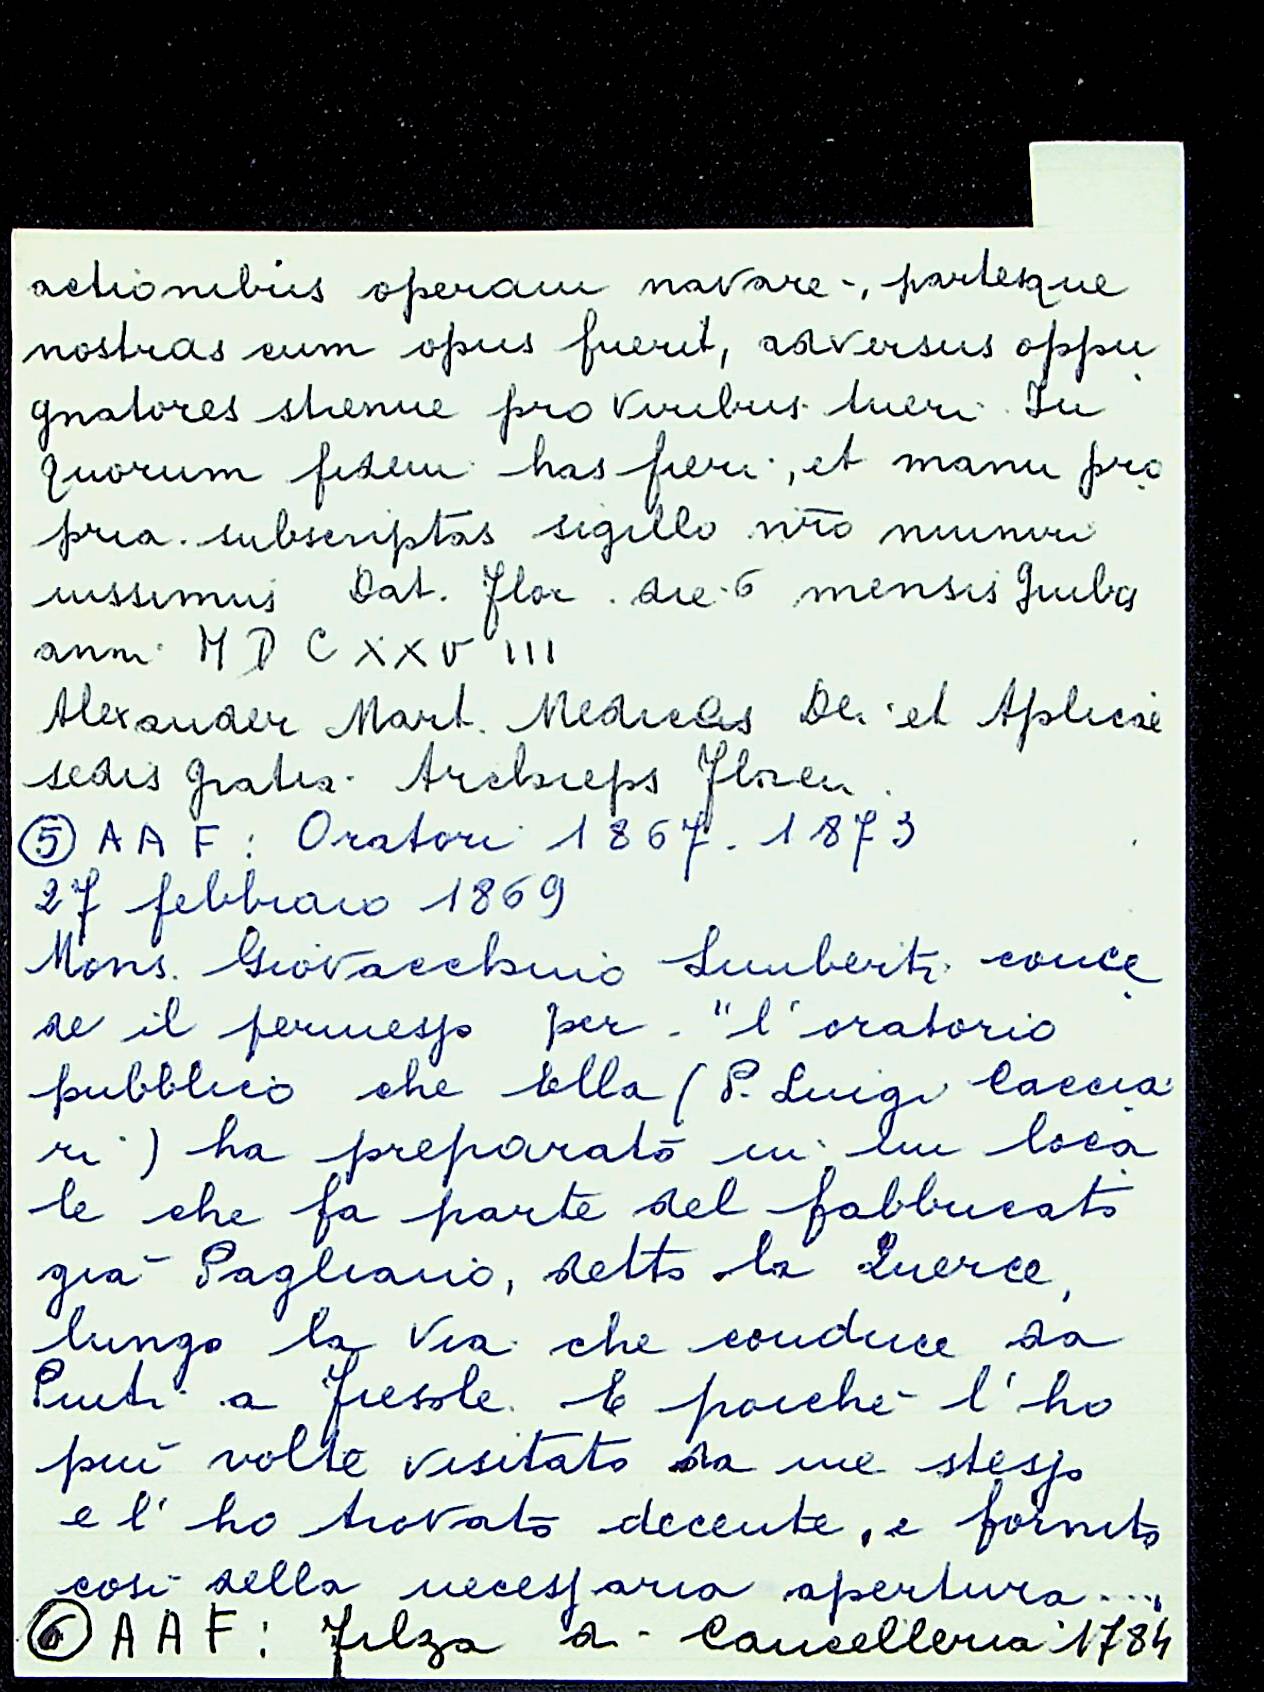 actionibus operam navare, partesque
nostras cum opus fuerit, adversus oppu
gnatores strenue pro viribus tueri. In
quorum fidem has fieri, et manu pro
pria subscriptas sigillo nr̃o muniri
iussimus Dat. Flor. die 6 mensis
anni MDCXXVIII
Alexander Mart. Medices Dei et Aplicae
sedis gratia Archieps Floren.
⑤ AAF: Oratori 1867-1873
27 febbraio 1869
Mons. Giovacchino Limberti conce
de il permesso per "l'oratorio
pubblico che Ella (P. Luigi Caccia
ri) ha preparato in un loca
le che fa parte del fabbricato
già Pagliano, detto la Querce,
lungo la via che conduce da
Pinti a Fiesole. E poiché l'ho
più volte visitato da me stesso
e l'ho trovato decente, e fornito
così della necessaria apertura....
⑥ AAF: Filza di Cancelleria 1784